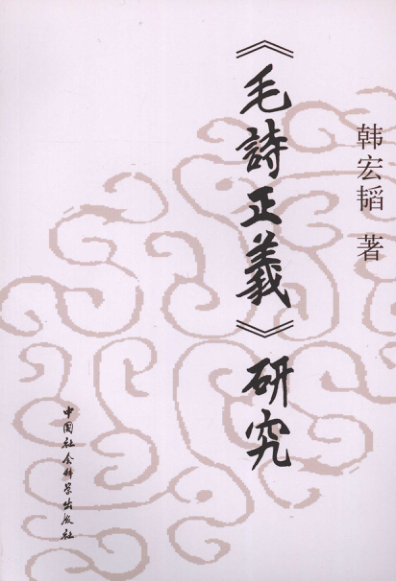 韩宏韬 著
《毛詩正義》研究
中国社会科学出版社